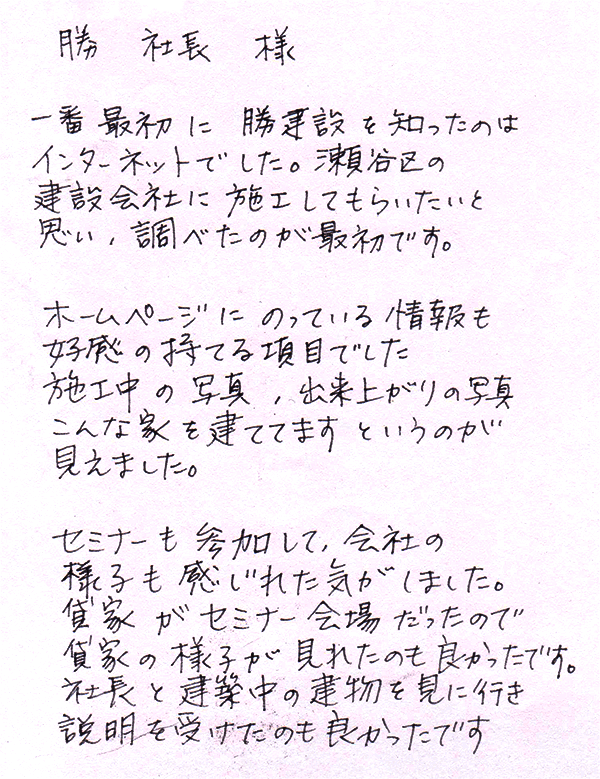 勝 社長 様
一番最初に 勝建設を知ったのは
インターネットでした。瀬谷区の
建設会社に施工してもらいたいと
思い、調べたのが最初です。
ホームページにのっている情報も
好感の持てる項目でした
施工中の写真、出来上がりの写真
こんな家を建ててますというのが
見えました。
セミナーも参加して、会社の
様子も感じれた気がしました。
貸家がセミナー会場だったので
貸家の様子が見れたのも良かったです。
社長と建築中の建物を見に行き
説明を受けたのも良かったです